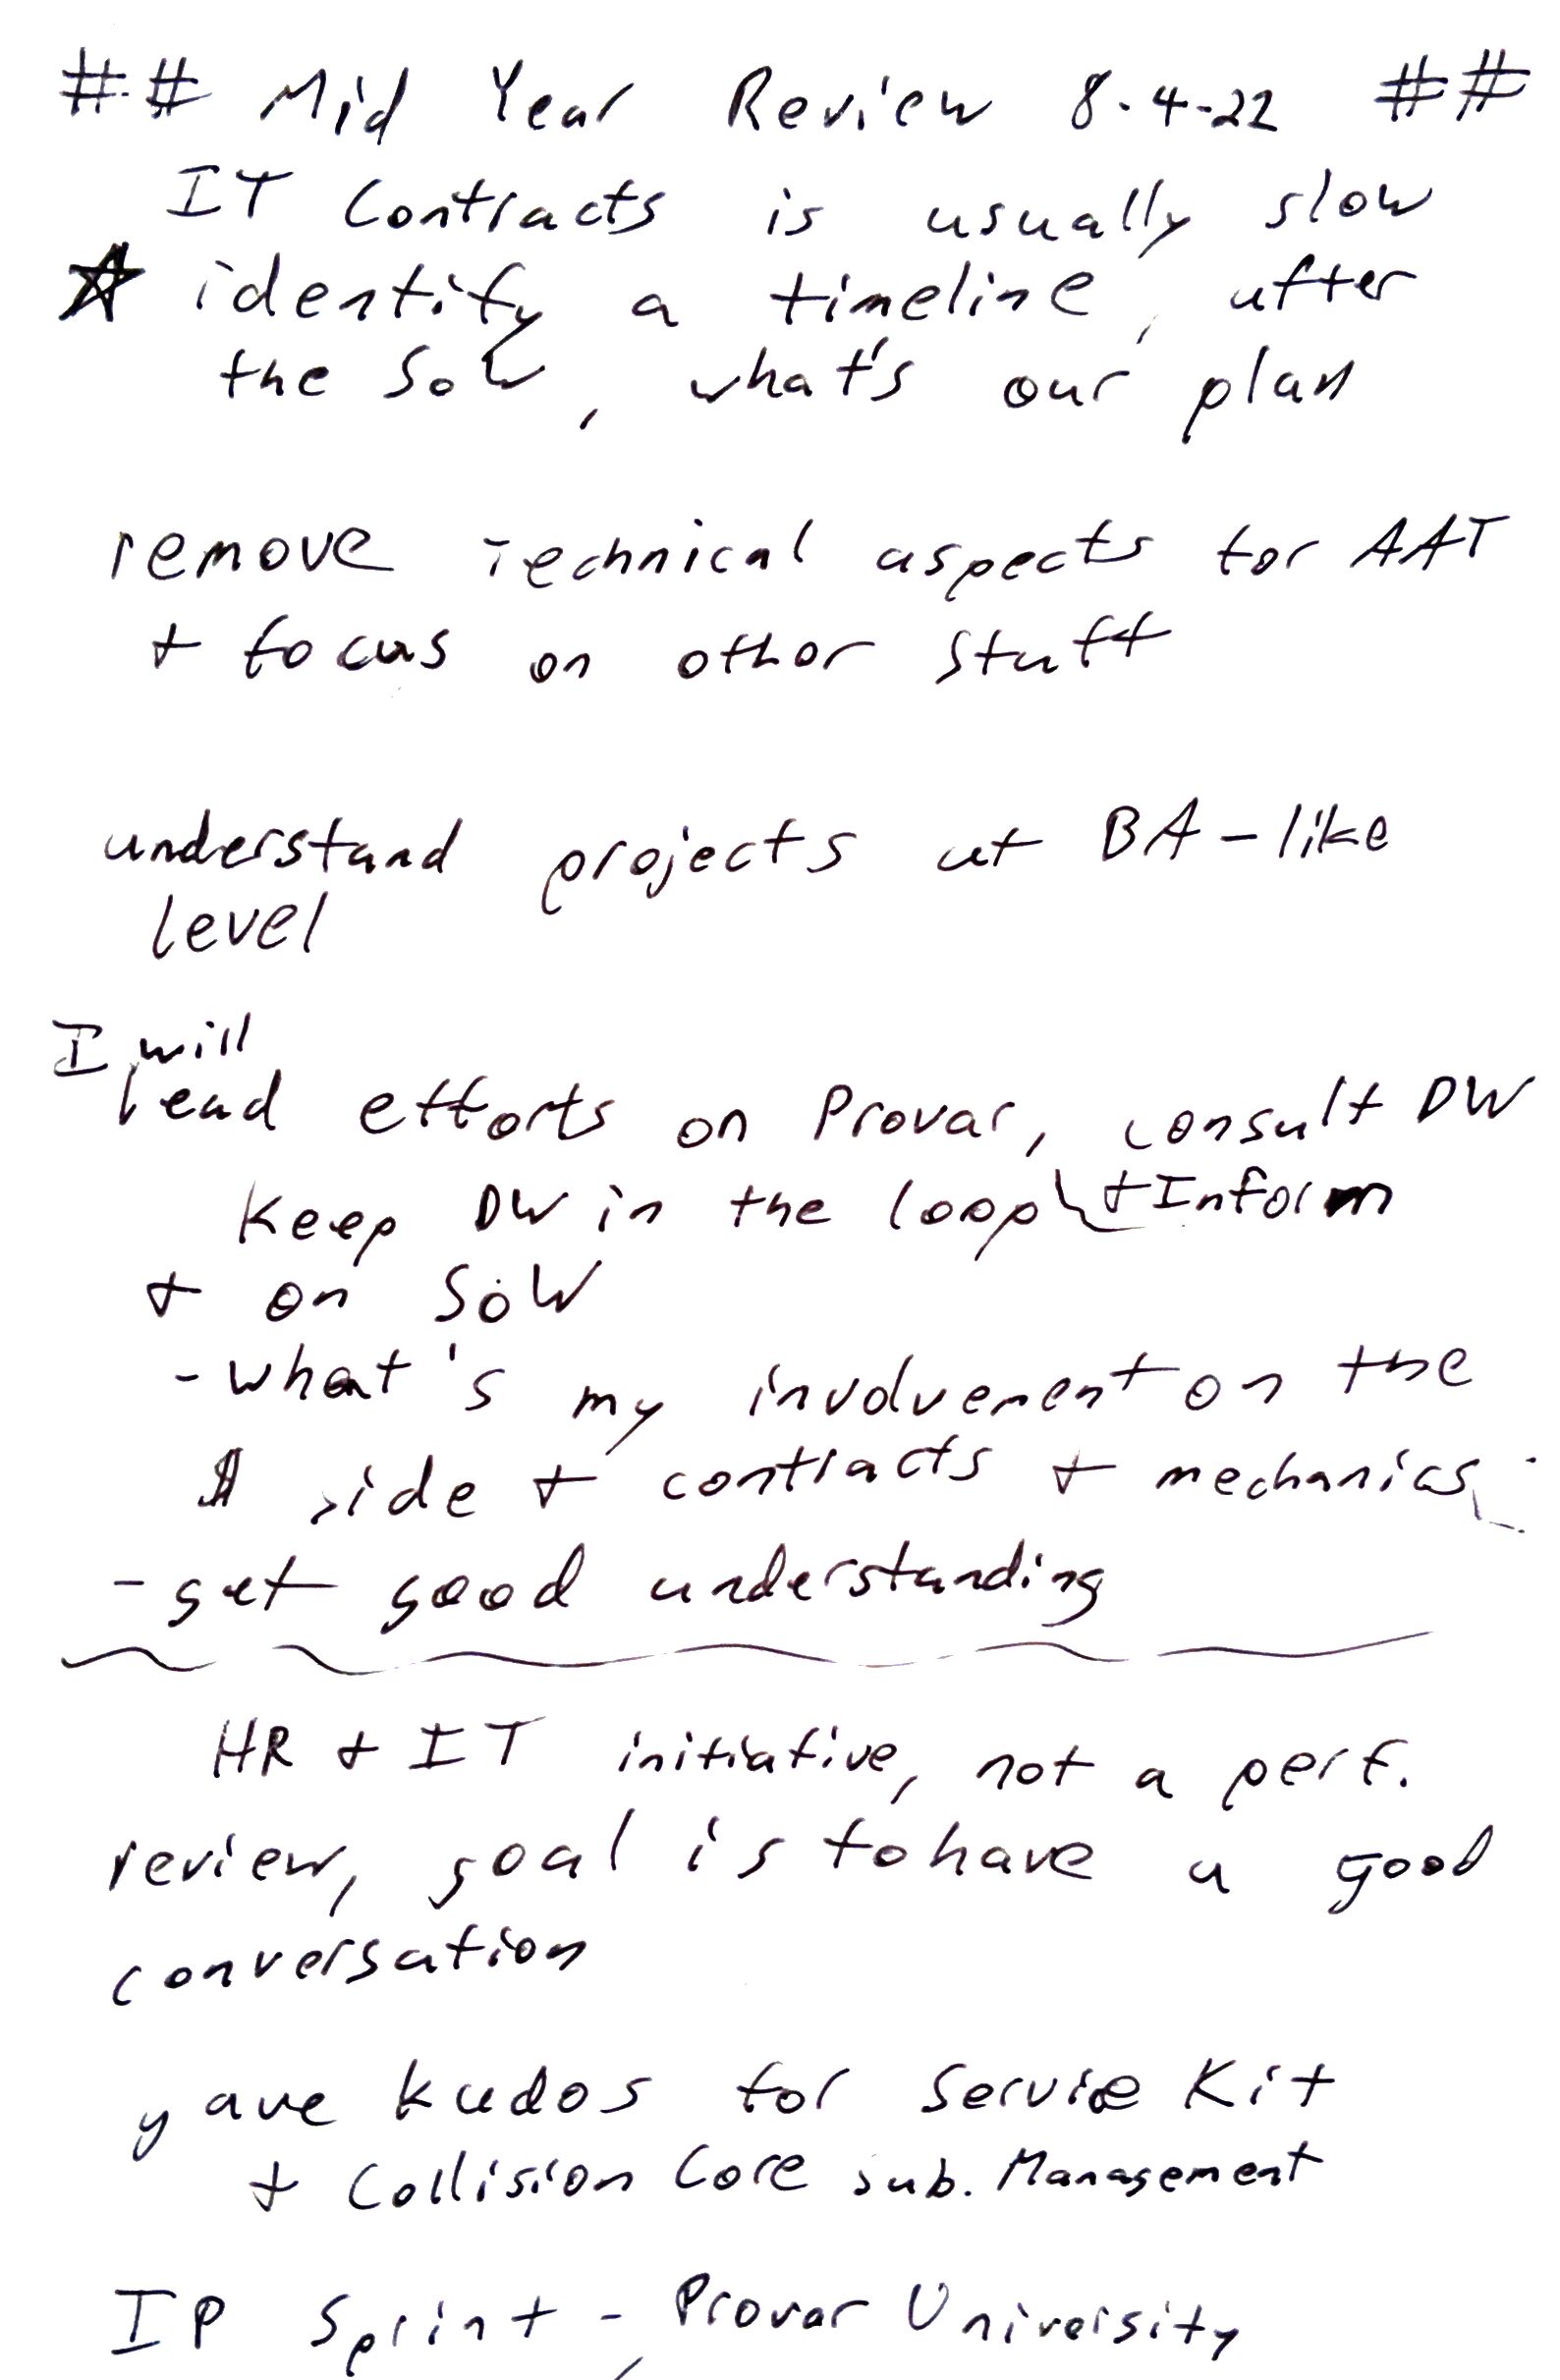 ## Mid Year Review 8-4-22 ##
IT Contracts is usually slow
☆ identify a timeline, after
the SoW, what's our plan
remove technical aspects for AAT
+ focus on other stuff
understand projects at BA-like
level
I will
lead efforts on Provar, consult DW
Keep DW in the loop + Inform
+ on SoW
- what's my involvement on the
$ side + contracts + mechanics
- get good understanding
HR + IT initiative, not a perf.
review, goal is to have a good
conversation
gave kudos for Service Kit
+ Collision Core sub. Management
IP Sprint - Provar University